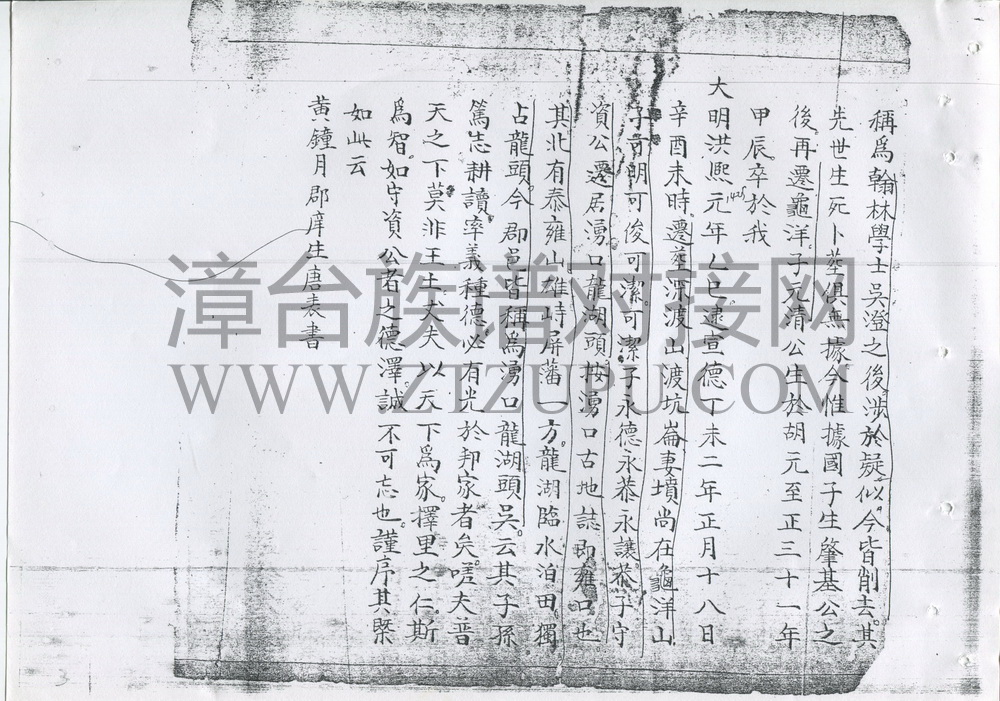 稱爲翰林學士吳澄之後涉於疑似今皆削去其
先世生死卜塟俱無據今惟據國子生肇基公之
後再遷龜洋子元清公生於胡元至正三十一年
甲辰卒於我
大明洪熙元年乙巳逮宣德丁未二年正月十八日
1425
辛酉未時遷塟深渡山渡坑崙妻墳尚在龜洋山
子可明可俊可潔可潔子永德永恭永讓恭子守
資公遷居湧口龍湖頭按湧口古地誌即雍口也
其北有泰雍山雄峙屏藩一方龍湖臨水泊田獨
占龍頭今郡邑皆稱爲湧口龍湖頭吳云其子孫
篤志耕讀率義種德必有光於邦家者矣嗟夫普
天之下莫非王土丈夫以天下爲家擇里之仁斯
爲智如守資公者之德澤誠不可忘也謹序其槩
如此云
黃鐘月郡庠生唐表書
漳台族谱对接网
WWW.ZTZUPU.COM
3